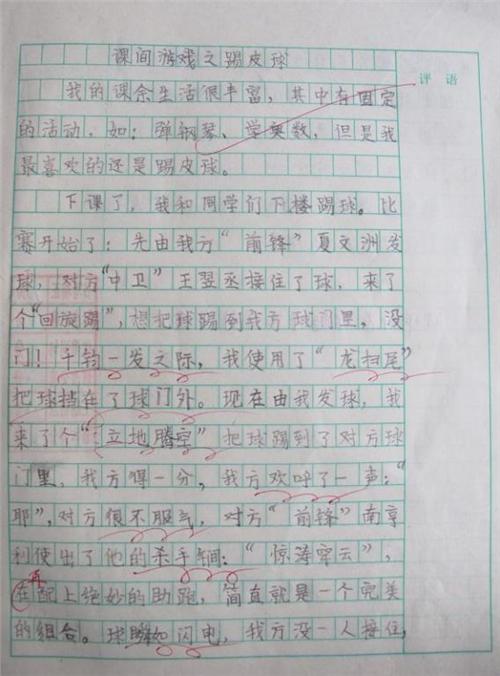 课间游戏之踢皮球
评语
我的课余生活很丰富，其中有固定
的活动，如：弹钢琴、学奥数，但是我
最喜欢的还是踢皮球。
下课了，我和同学们下楼踢球。比
赛开始了：先由我方“前锋”夏文洲发
球，对方“中卫”王翌丞接住了球，来了
个“回旋踢”，想把球踢到我方球门里，没
门！千钧一发之际，我使用了“龙扫尾”
把球挡在了球门外。现在由我发球，我
来了个“立地腾空”把球踢到了对方球
门里，我方得一分，我方欢呼了一声：“
耶”，对方很不服气，对方“前锋”南享
利使出了他的杀手锏：“惊涛穿云”，
再
在配上绝妙的助跑，简直就是一个完美
的组合。球瞬如闪电，我方没一人接住，